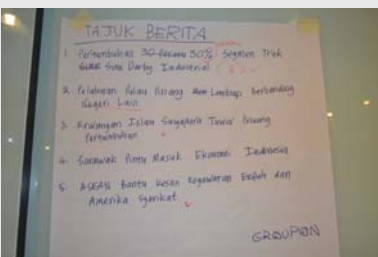 TAJUK BERITA
1. Pertumbuhan 30 30% Segmen Trak
Sime Darby Industrial
2. Pelabuhan Pulau Pinang Lembap Berbanding
Negeri Lain
3. Kewangan Islam Singapura Tawar Peluang
Pertumbuhan
4. Sarawak Pintu Masuk Ekonomi Indonesia
5. ASEAN Bantu Kesan Kegawatan Eropah dan
Amerika Syarikat
GROUPON